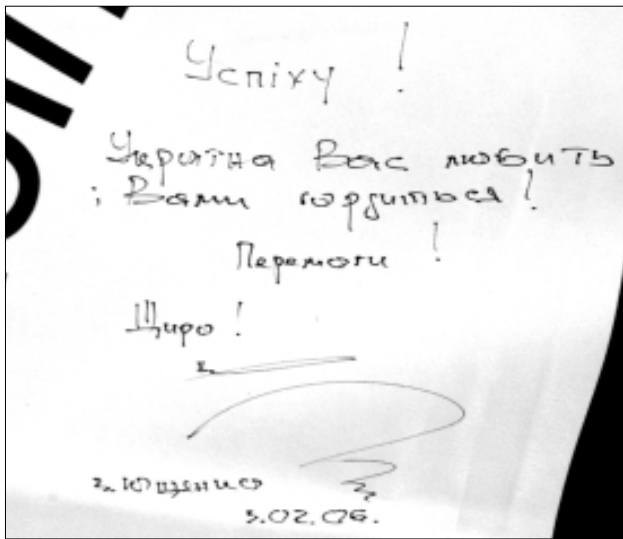 Успіху !
Україна Вас любить
і Вами гордиться !
Перемоги !
Щиро !
В. Ющенко
3.02.06.